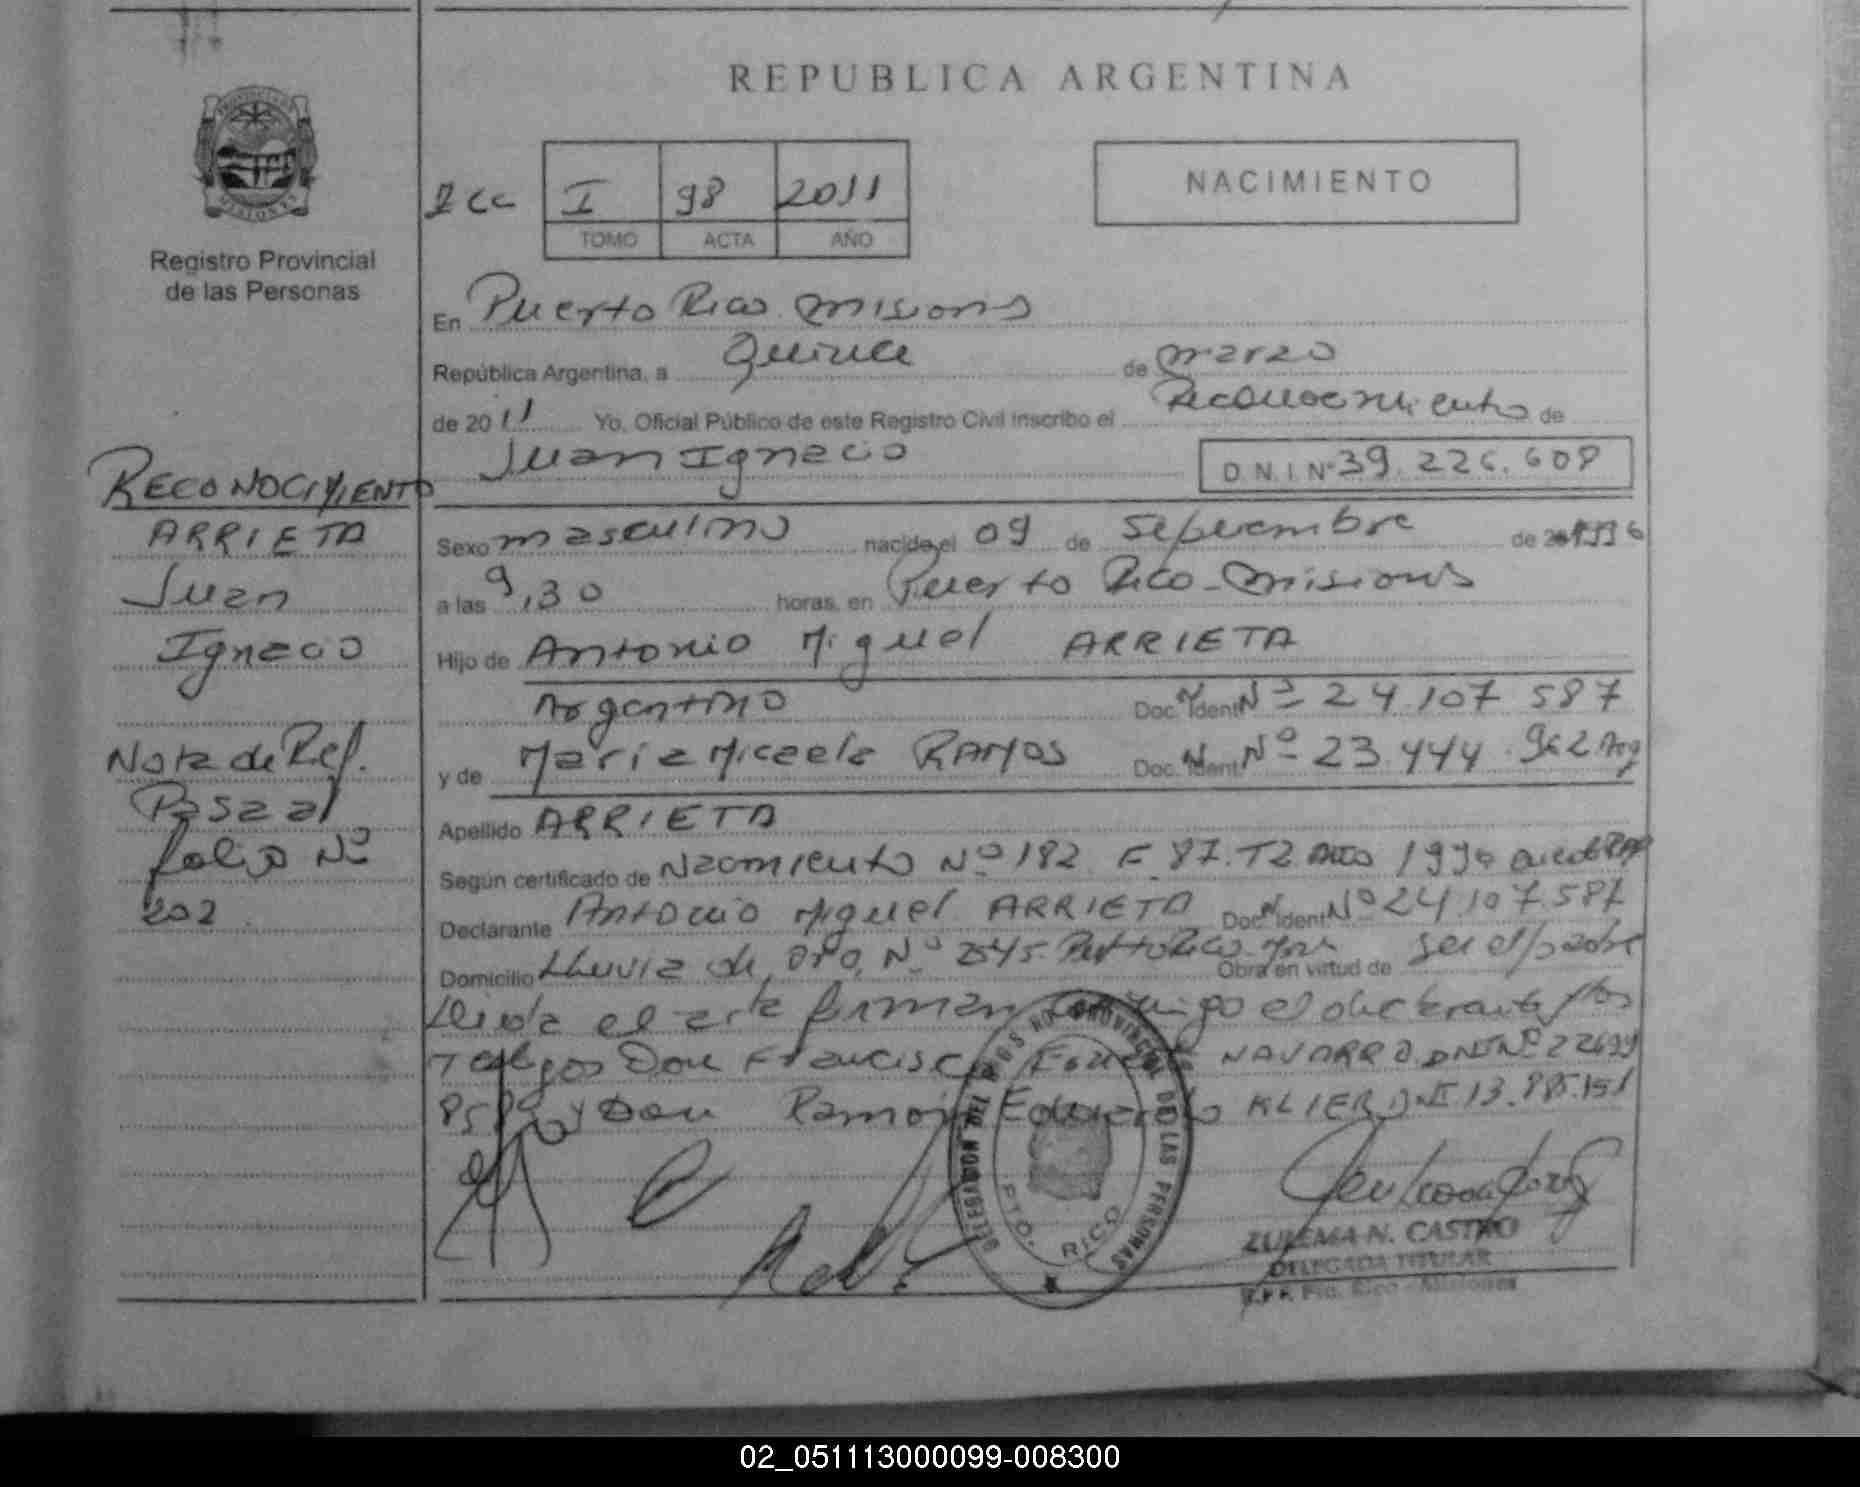 REPUBLICA ARGENTINA
PROVINCIA DE MISIONES
Registro Provincial
de las Personas
I 98 2011
TOMO ACTA AÑO
NACIMIENTO
En Puerto Rico Misiones
República Argentina, a Quince de marzo
de 2011 Yo, Oficial Público de este Registro Civil inscribo el Reconocimiento de
Juan Ignacio D.N.I. Nº 39.226.608
RECONOCIMIENTO
ARRIETA
Juan
Ignacio
Nota de Ref.
Pasa al
folio Nº
202
Sexo masculino nacido el 09 de Septiembre de 1996
a las 9,30 horas, en Puerto Rico - Misiones
Hijo de Antonio Miguel ARRIETA
Argentino Doc. Ident Nº 24.107.587
y de Maria Micaela RAMOS Doc. Ident. Nº 23.444.962 Arg
Apellido ARRIETA
Según certificado de Nacimiento Nº 182 F. 87. T2 Año 1996
Declarante Antonio Miguel ARRIETA Doc. Ident Nº 24.107.587
Domicilio Lluvia de Oro, Nº 2545. Pto Rico. Mns Obra en virtud de ser el padre
Leida el acta firman conmigo el declarante y los
Testigos Don Francisco NAVARRO DNI Nº 22699
858 y Don Ramón Eduardo KLIER DNI 13.885.151
DELEGACION REGISTRO PROVINCIAL DE LAS PERSONAS
PTO. RICO
ZULEMA N. CASTRO
DELEGADA TITULAR
R.P.P. Pto. Rico - Misiones
02_051113000099-008300